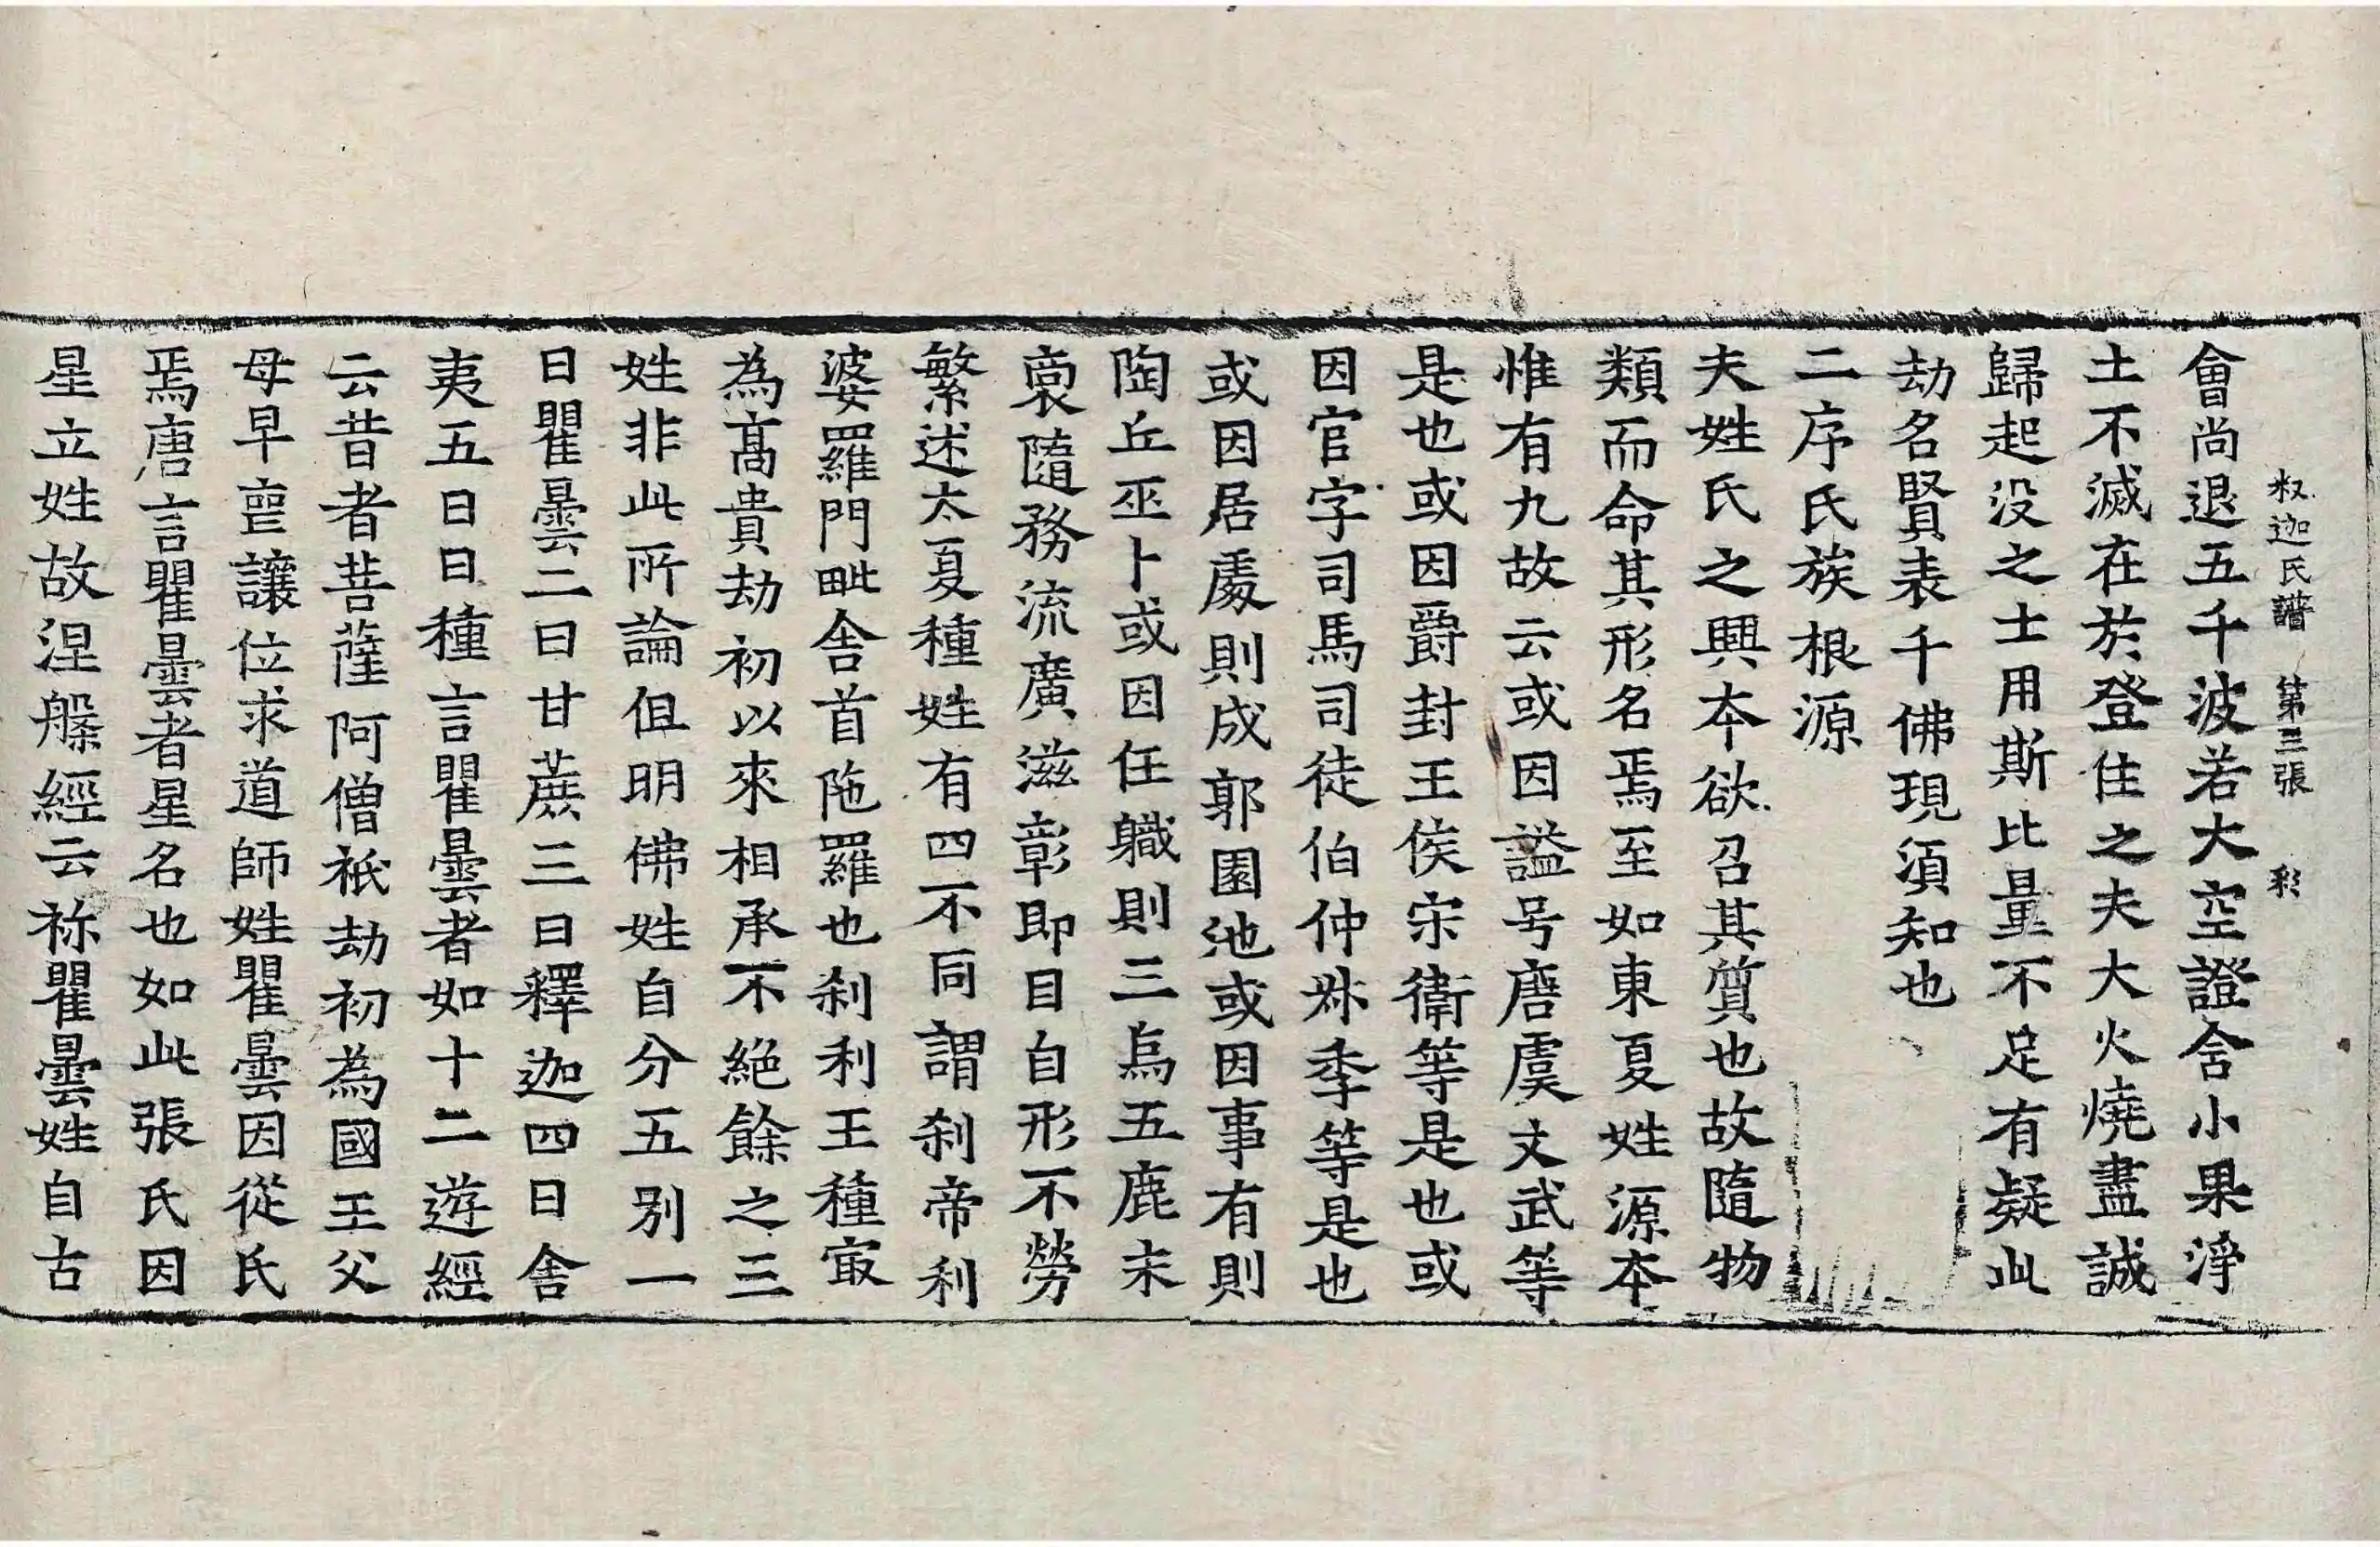 釈迦氏譜 第三張 彩
會尚退五千波若大空證舍小果淨
土不滅在於登住之夫大火燒盡誠
歸起没之士用斯比量不足有疑此
劫名賢表千佛現湏知也
二序氏族根源
夫姓氏之興本欲召其質也故隨物
類而命其形名焉至如東夏姓源本
惟有九故云或因謚号唐虞文武等
是也或因爵封王侯宋衛等是也或
因官字司馬司徒伯仲叔季等是也
或因居處則成郭園池或因事有則
陶丘巫卜或因任職則三烏五鹿末
裔隨務流廣滋彰即目自形不勞
繁述太夏種姓有四不同謂刹帝利
婆羅門毗舍首陁羅也刹利王種㝡
為髙貴劫初以來相承不絕餘之三
姓非此所論但明佛姓自分五別一
曰瞿曇二曰甘蔗三曰釋迦四曰舍
夷五曰日種言瞿曇者如十二遊經
云昔者菩薩阿僧祇劫初為國王父
母早喪讓位求道師姓瞿曇因從氏
焉唐言瞿曇者星名也如此張氏因
星立姓故涅槃經云袮瞿曇姓自古